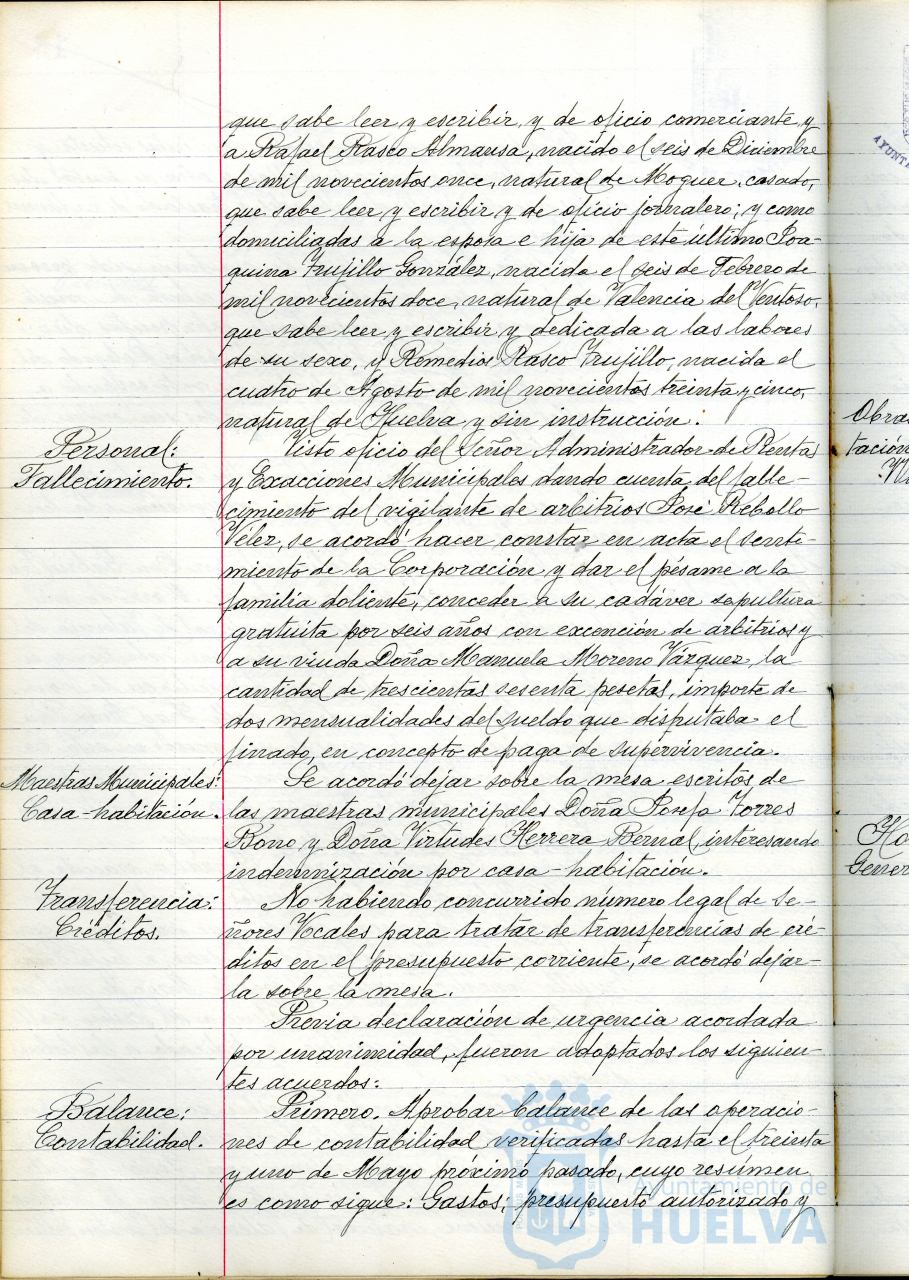 que sabe leer y escribir, y de oficio comerciante y
a Rafael Rasco Almansa, nacido el seis de Diciembre
de mil novecientos once, natural de Moguer, casado,
que sabe leer y escribir y de oficio jornalero; y como
domiciliadas a la esposa e hija de este último Joa-
quina Trujillo González, nacida el seis de Febrero de
mil novecientos doce, natural de Valencia del Ventoso,
que sabe leer y escribir y dedicada a las labores
de su sexo, y Remedios Rasco Trujillo, nacida el
cuatro de Agosto de mil novecientos treinta y cinco,
natural de Huelva y sin instrucción.
Personal:
Fallecimiento.
Visto oficio del Señor Administrador de Rentas
y Exacciones Municipales dando cuenta del falle-
cimiento del vigilante de arbitrios José Rebollo
Vélez, se acordó hacer constar en acta el senti-
miento de la Corporación y dar el pésame a la
familia doliente, conceder a su cadáver sepultura
gratuita por seis años con excención de arbitrios y
a su viuda Doña Manuela Moreno Vázquez, la
cantidad de trescientas sesenta pesetas, importe de
dos mensualidades del sueldo que disfrutaba el
finado, en concepto de paga de supervivencia.
Maestras Municipales:
Casa-habitación.
Se acordó dejar sobre la mesa escritos de
las maestras municipales Doña Josefa Torres
Bono y Doña Virtudes Herrera Bernal, interesando
indemnización por casa-habitación.
Transferencia:
Créditos.
No habiendo concurrido número legal de Se-
ñores Vocales para tratar de transferencias de cré-
ditos en el presupuesto corriente, se acordó dejar-
la sobre la mesa.
Previa declaración de urgencia acordada
por unanimidad, fueron adoptados los siguien-
tes acuerdos:
Balance:
Contabilidad.
Primero. Aprobar balance de las operacio-
nes de contabilidad verificadas hasta el treinta
y uno de Mayo próximo pasado, cuyo resúmen
es como sigue: Gastos; presupuesto autorizado y
Ayuntamiento de
HUELVA
Obras
tación